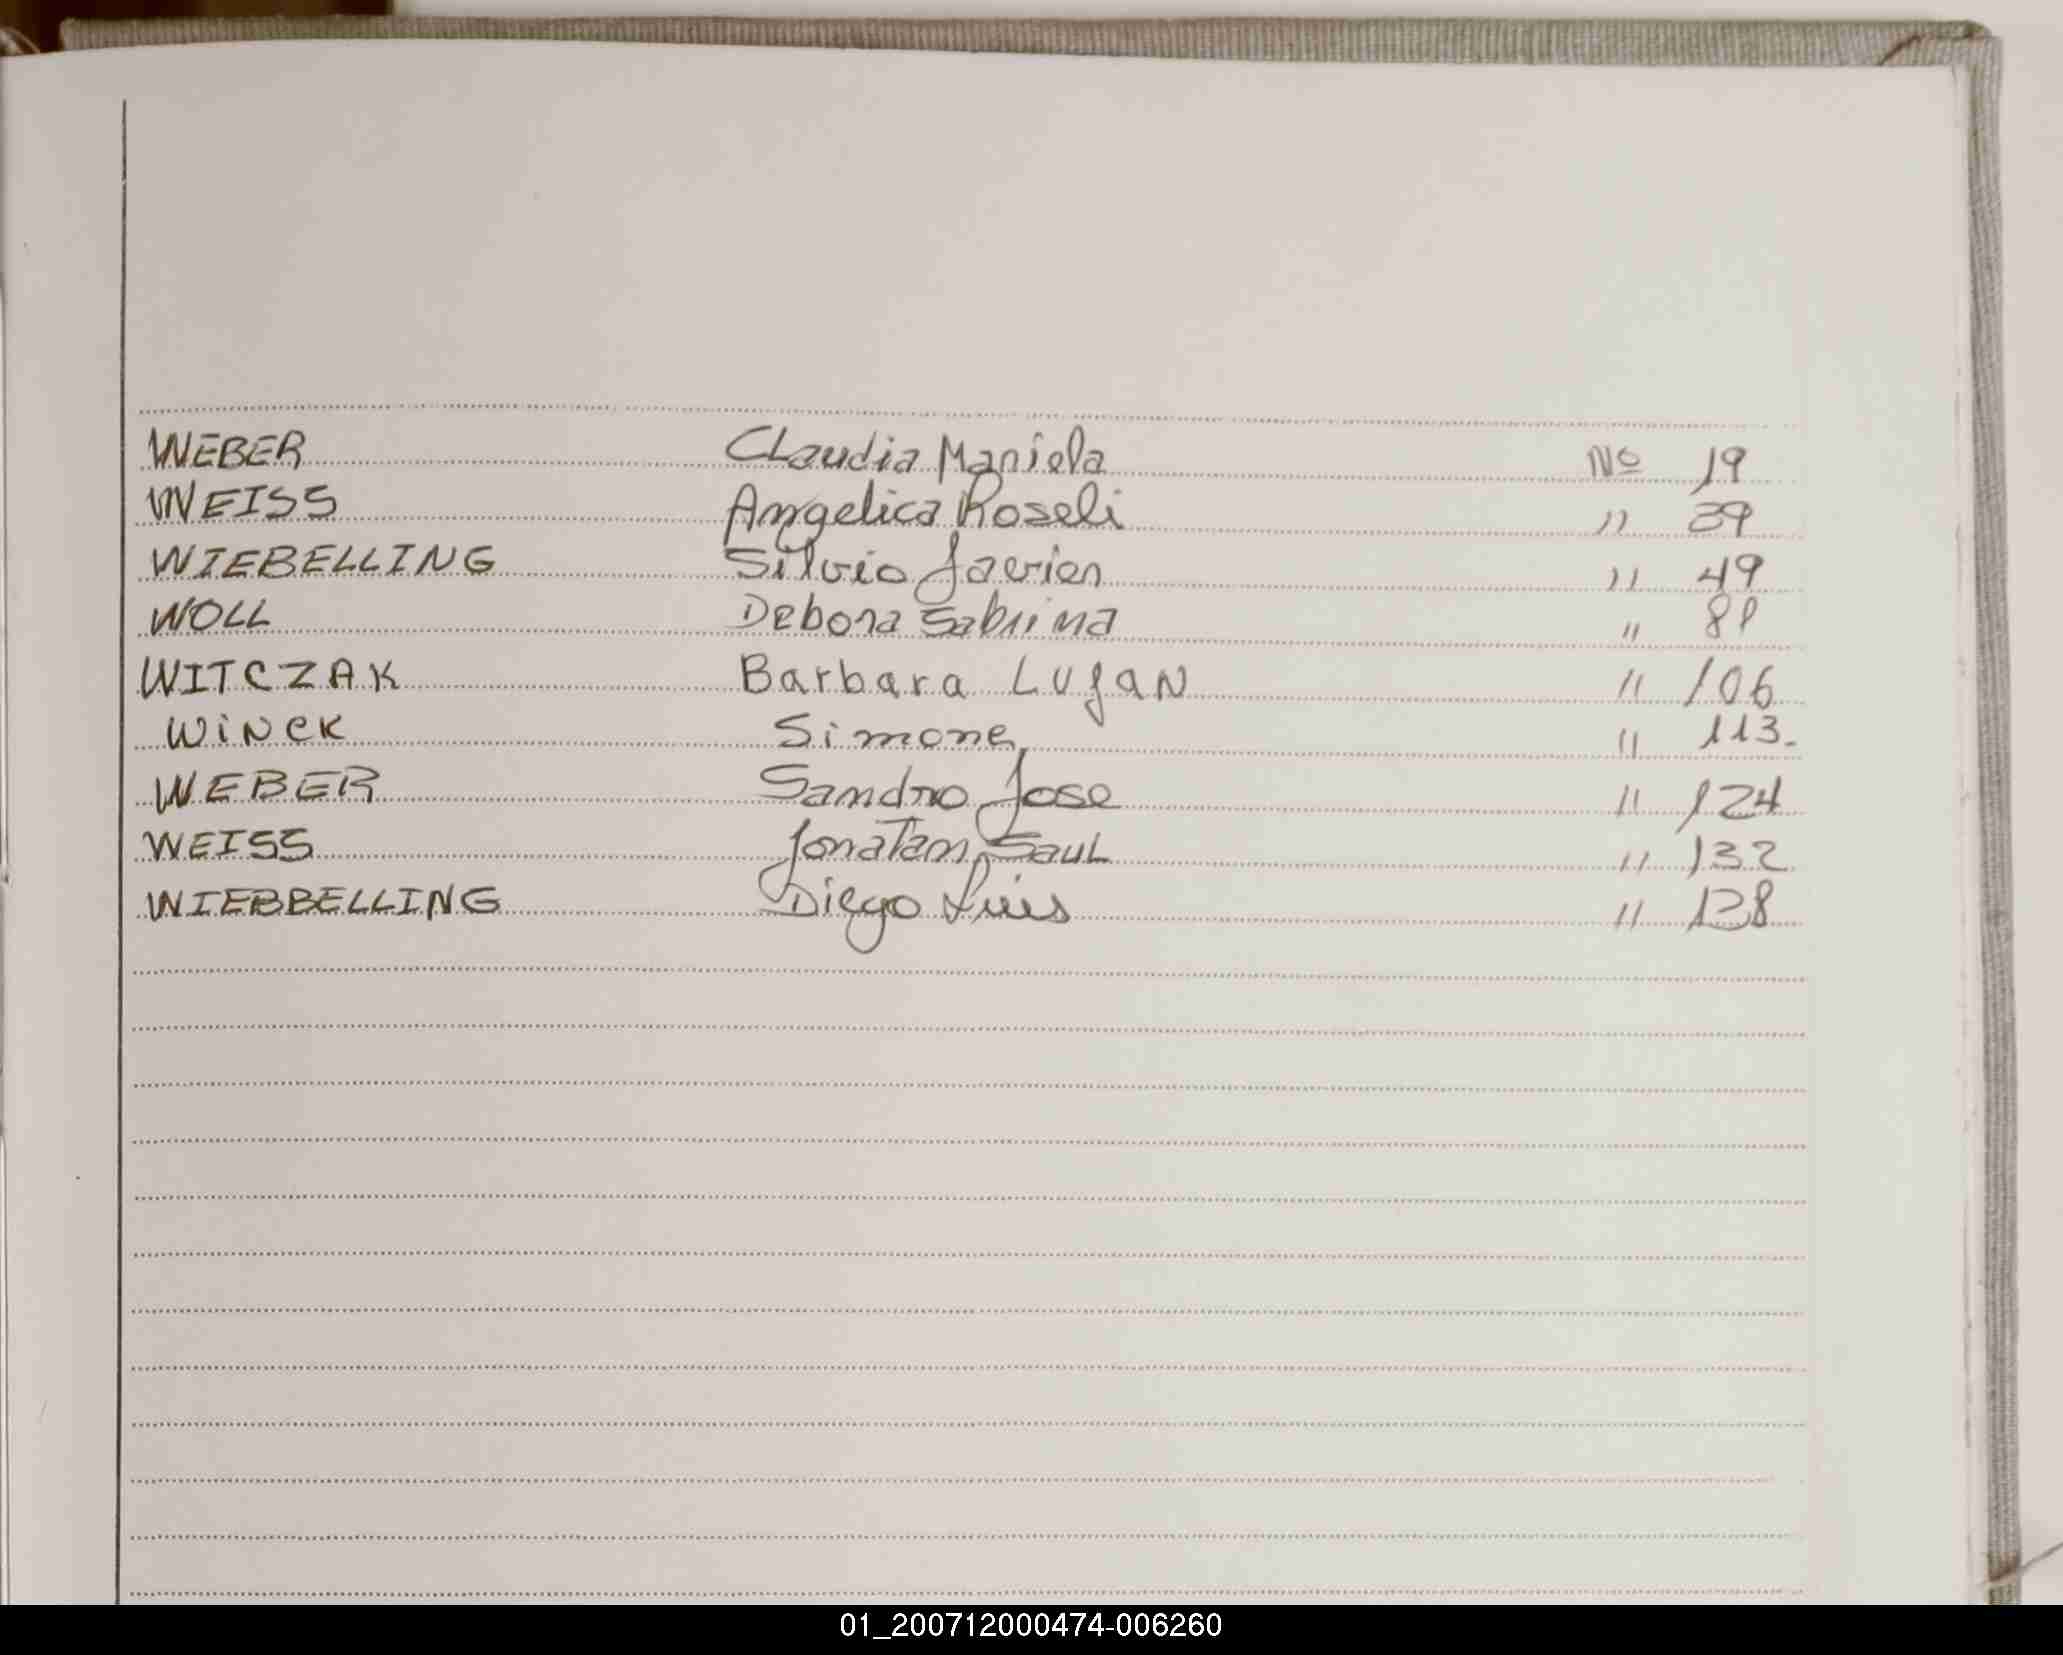 WEBER Claudia Mariela Nº 19
WEISS Angelica Roseli " 39
WIEBELLING Silvio Javier " 49
WOLL Debora Sabrina "
WITCZAK Barbara Lujan " 106
WiNCK Simone " 113-
WEBER Sandro Jose " 124
WEISS Jonatam Saul " 132
WIEBBELLING Diego Luis " 138
01_200712000474-006260